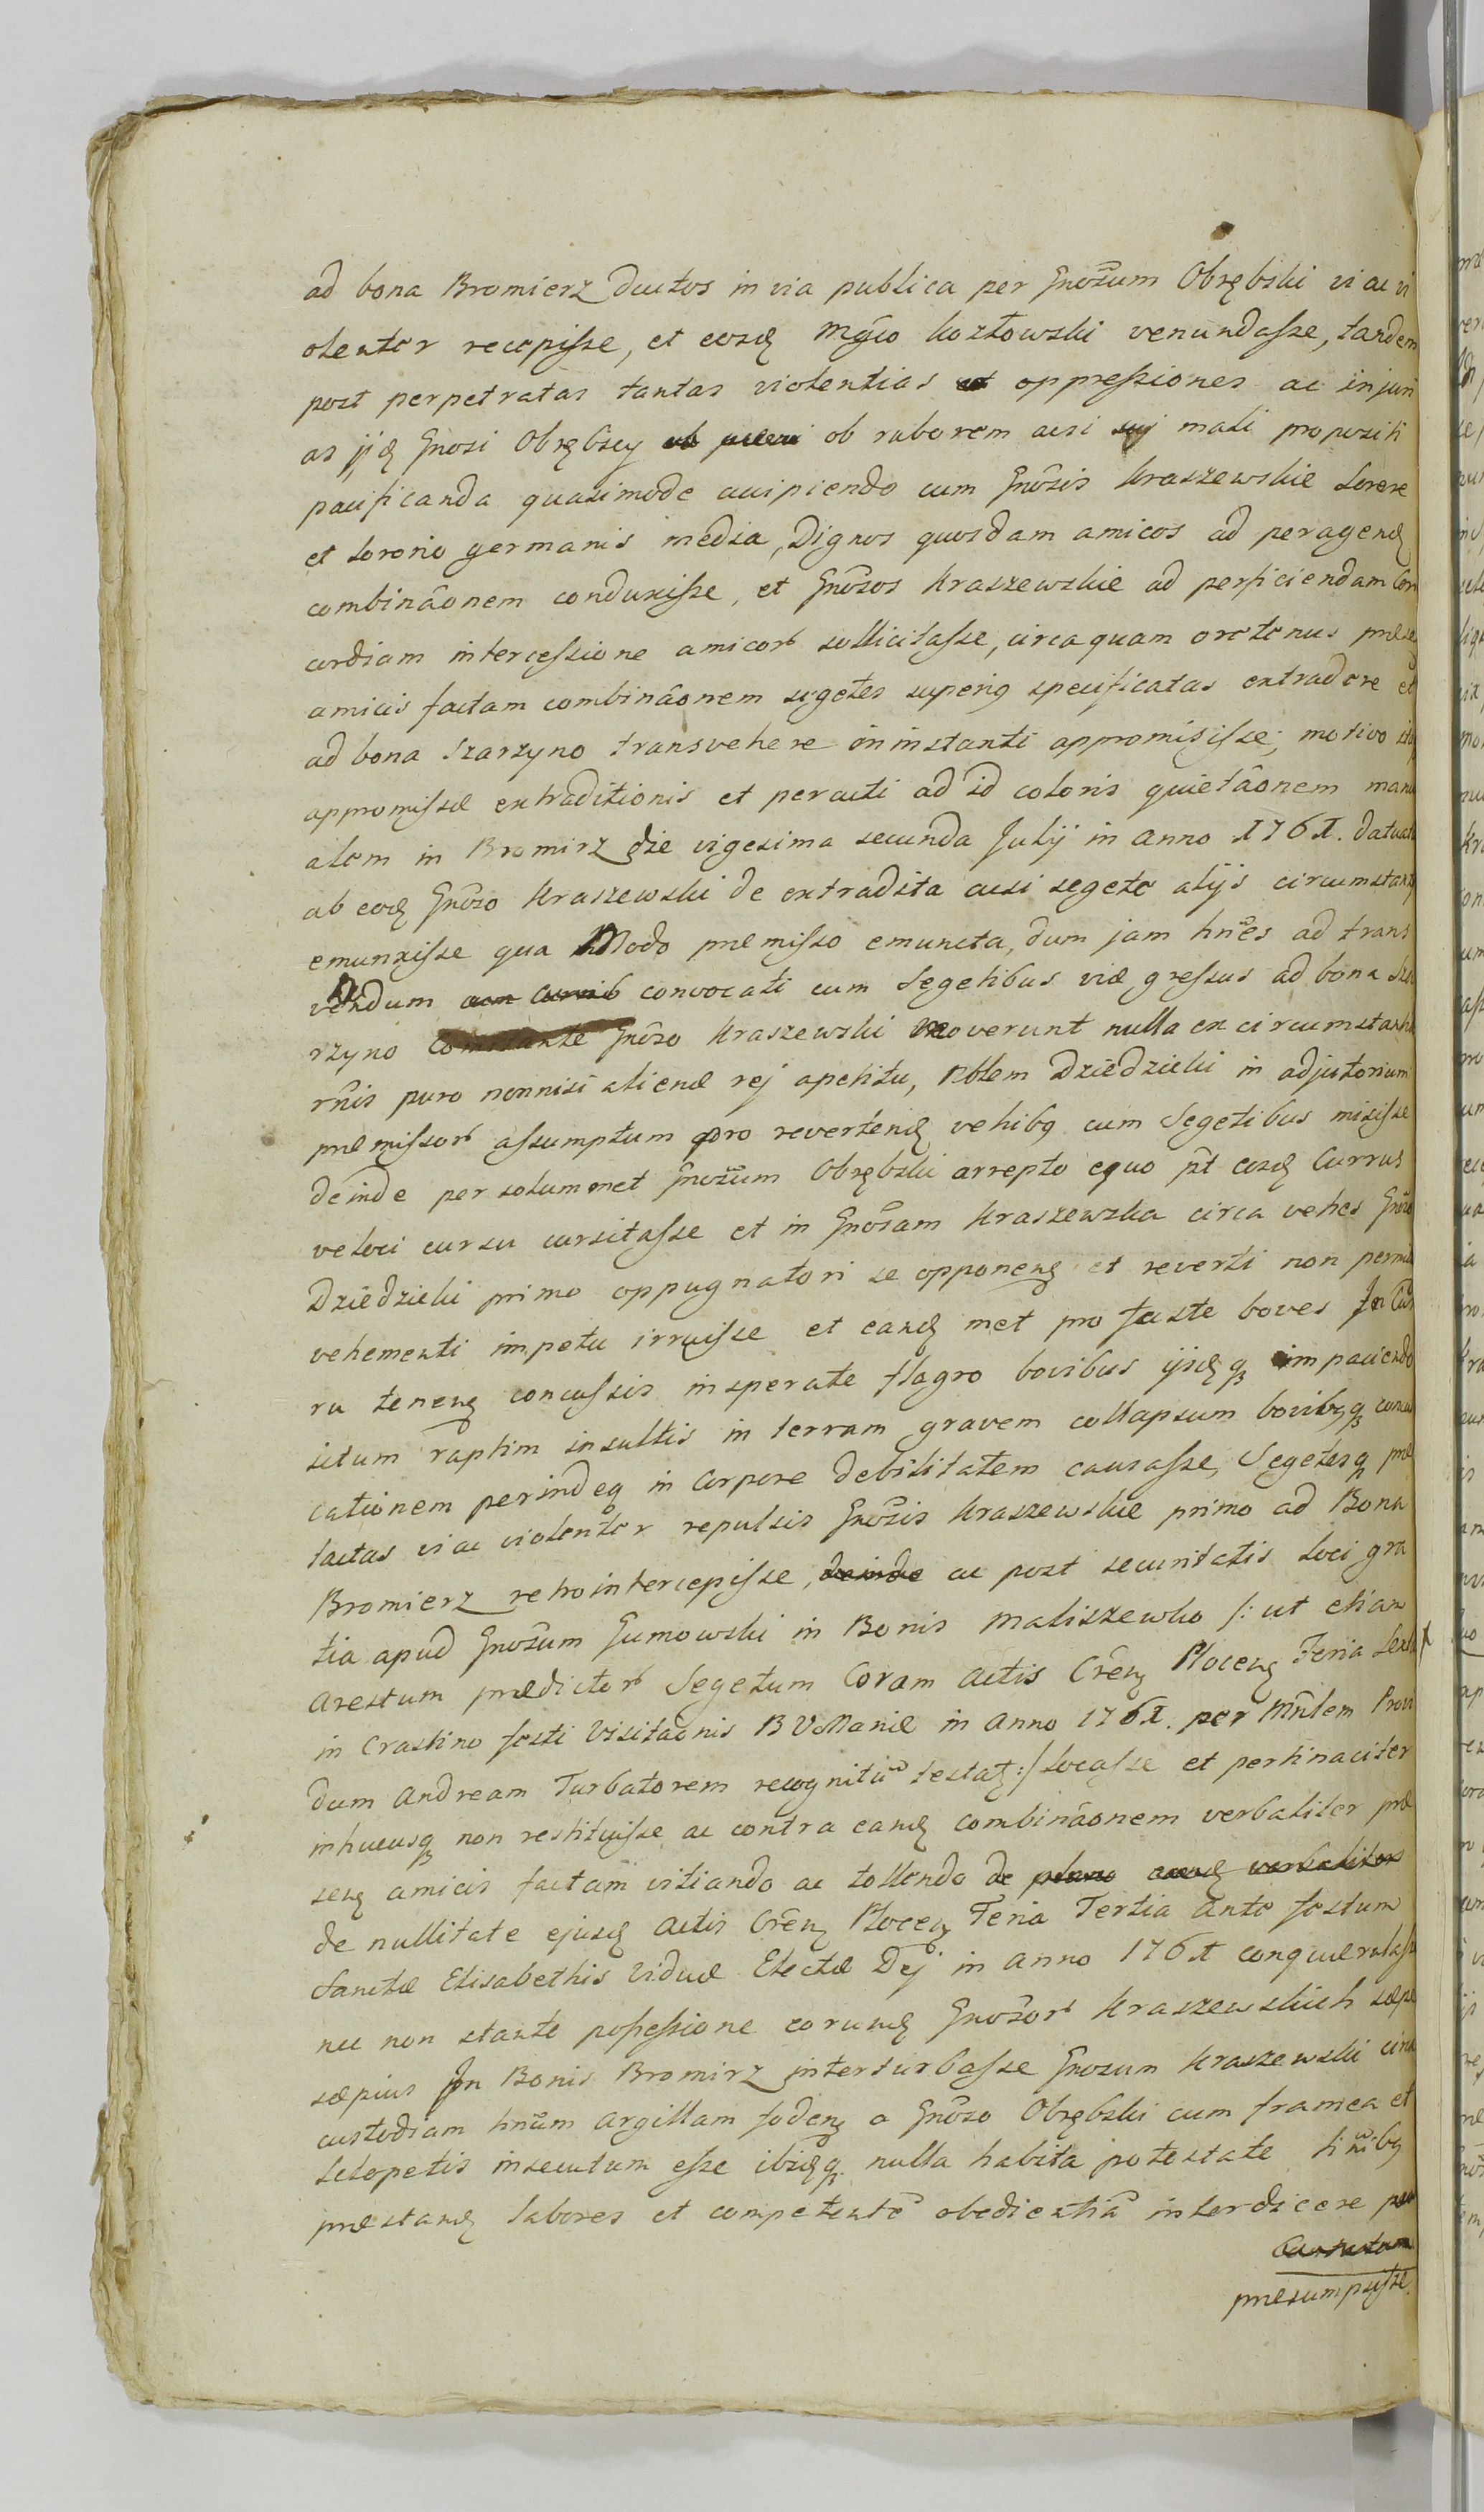 ad bona Bromierz ductos in via publica per Gnosum Obrębski vi ac vi
olenter recepisse, et eosd Mgco Kozłowski venundasse, tandem
post perpetratas tantas violentias et oppressiones ac injuri
as ijd Gnosi Obrębscy ob ruborem acsi suj mali propositi
pacificanda quasimode accipiendo cum Gnosis Kraszewskie Sorore
et Sororio germanis media, Dignos quosdam amicos ad peragend
combinaonem conduxisse, et Gnosos Kraszewskie ad perficiendam Con
cordiam intercessione amicor sollicitasse, circa quam oretenus præse
amicis factam combinaonem segetes superig specificatas extradere et
ad bona Szarzyno transvehere in instanti appromisisse, motivo
appromissæ extraditionis et peracti ad id coloris quietaonem manu
alem in Bromirz die vigesima secunda Julij in anno 1761. datuat
ab eod Gnoso Kraszewski de extradita acsi segete alijs circumstant
emunxisse qua Modo præmisso emuncta, dum jam hnes ad trans
vendum convocati cum Segetibus viæ gressus ad bona Sza
rzyno Comitante Gnoso Kraszewski moverunt nulla ex circumstanti
rnis puro nonnisi alienæ rej apetitu, Nblem Dziedzicki in adjutorium
præmissor assumptum pro revertend vehibg cum Segetibus misisse
deinde per solummet Gnosum Obrębski arrepto equo pt eosd Currus
veloci cursu cursitasse et in Gnosam Kraszewska circa vehes Gnoso
Dziedzicki primo oppugnatori se opponend et reverti non permit
vehementi impetu irruisse et eand met pro faste boves In Cur
ru tenend concussis insperate flagro bovibus ijsdq impaciendo
situm raptim insultis in terram gravem collapsum bovibgq concul
cationem perindeq in Corpore debilitatem causasse, Segetesq præ
tactas vi ac violenter repulsis Gnosis Kraszewskie primo ad Bona
Bromierz retrointercepisse, deinde ac post securitatis loci gra
tia apud Gnosum Gumowski in Bonis Maliszewko /: ut etiam
arestum prædictor Segetum Coram Actis Cren Plocen Feria Sexta
in Crastino festi Visitaonis B V Mariæ in Anno 1761. per Mnlem Provi
dum Andream Turbatorem recognitu testat :/ locasse et pertinaciter
inhucusq non restituisse ac contra eand combinaonem verbaliter præ
sen amicis factam vitiando ac tollendo de plano eand verbaliter
de nullitate ejusd Actis Cren Plocen Feria Tertia Ante festum
Sanctæ Elisabethis Viduæ Electæ Dej in anno 1761 conquærulasse
nec non stante possessione eorumd Gnosor Kraszewskich sæpe
sæpius In Bonis Bromirz interturbasse Gnosum Kraszewski circa
custodiam hnum argillam foden a Gnoso Obrębski cum framea et
Sclopetis insecutum esse ibidq nulla habita potestate hnibg
præstand labores et competente obedientia interdicere
præsumpsisse.